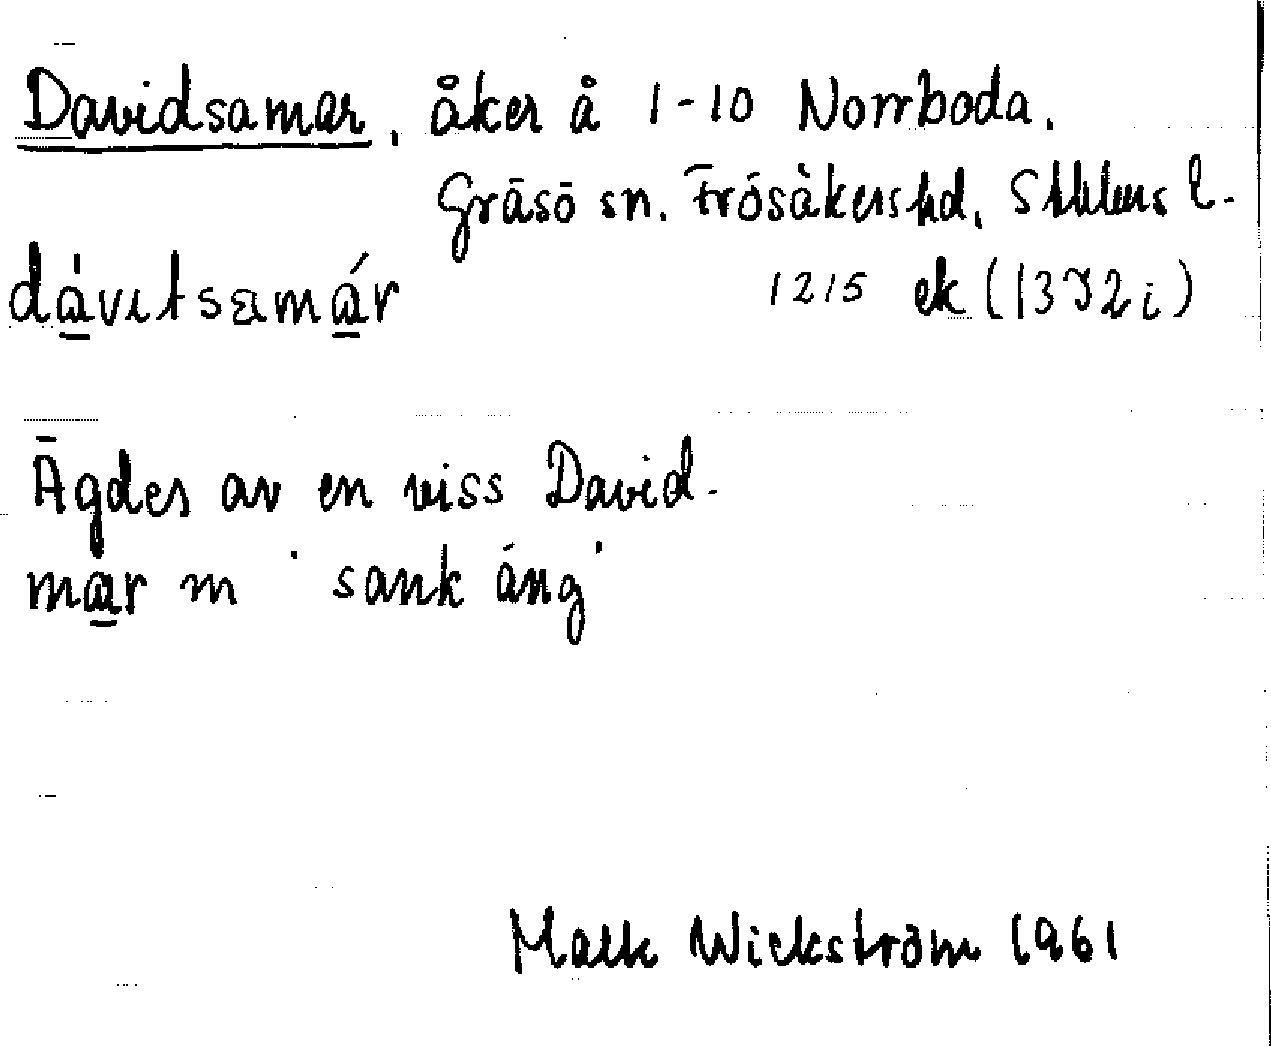 Davidsamar, åker å 1-10 Norrboda.
Gräsö sn. Frösåkers hd. Sthlms l.
dàvιtsamár 1215 ek (13I2i)
Ägdes av en viss David.
mar m 'sank äng'
Wickström 1961